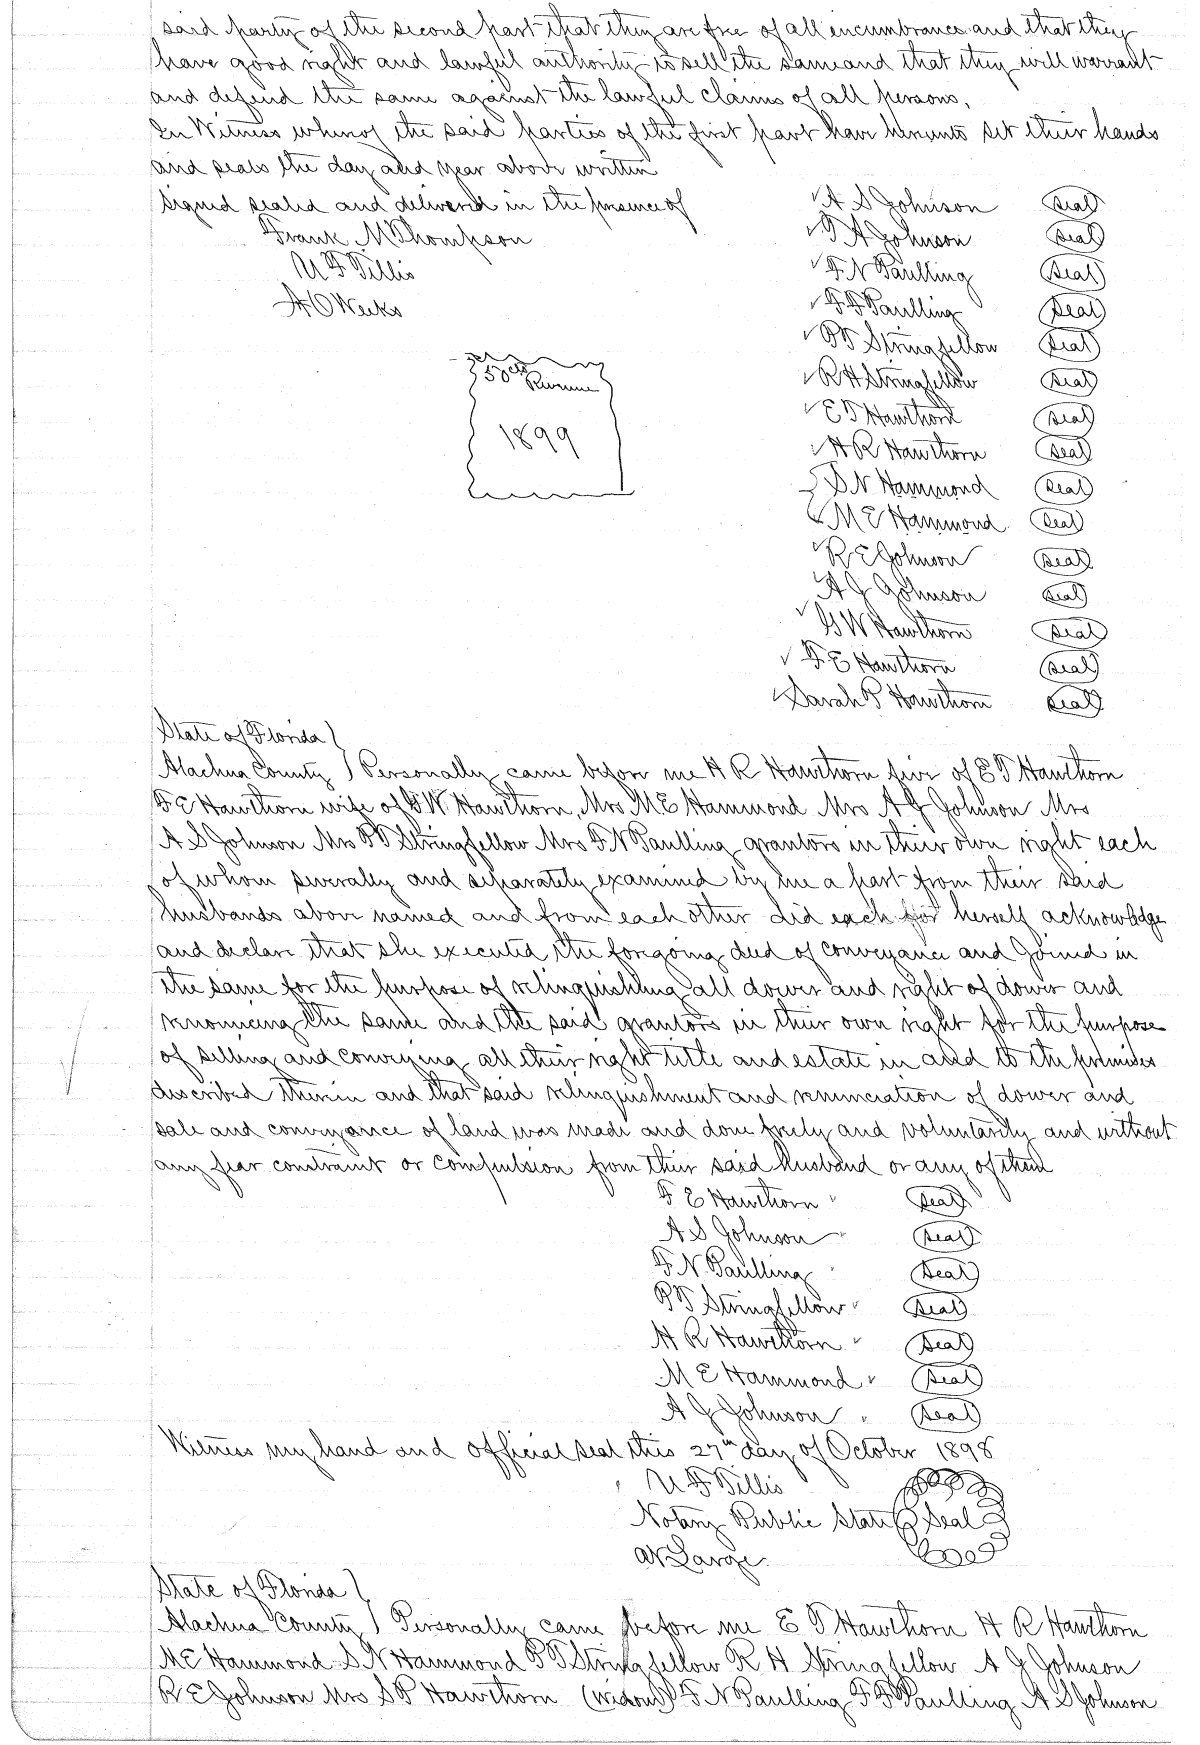 said party of the second part that they are free of all encumbrance and that they
have good right and lawful authority to sell the same and that they will warrant
and defend the same against the lawful claims of all persons.
In Witness whereof the said parties of the first part have hereunto set their hands
and seals the day and year above written
Signed sealed and delivered in the presence of
Frank M Thompson
U F Tillis
A O Weeks
A S Johnson Seal
T A Johnson Seal
F N Paulling Seal
F F Paulling Seal
P T Stringfellow Seal
R H Stringfellow Seal
E T Hawthorn Seal
H R Hawthorn Seal
S N Hammond Seal
M E Hammond Seal
R E Johnson Seal
A J Johnson Seal
G W Hawthorn Seal
F E Hawthorn Seal
Sarah P Hawthorn Seal
50 cts
Revenue
1899
State of Florida
Alachua County Personally came before me H R Hawthorn of E T Hawthorn
F E Hawthorn wife of G W Hawthorn, Mrs M E Hammond Mrs A J Johnson Mrs
A S Johnson Mrs P T Stringfellow Mrs F N Paulling grantors in their own right each
of whom severally and separately examined by me a part from their said
husbands above named and from each other did each for herself acknowledge
and declare that she executed the foregoing deed of conveyance and Joined in
the same for the purpose of relinquishing all dower and right of dower and
renouncing the same and the said grantors in their own right for the purpose
of selling and conveying all their right title and estate in and to the premises
described therein and that said relinquishment and renunciation of dower and
sale and conveyance of land was made and done freely and voluntarily and without
any fear constraint or compulsion from their said husband or any of them
F E Hawthorn Seal
A S Johnson Seal
F N Paulling Seal
P T Stringfellow Seal
H R Hawthorn Seal
M E Hammond Seal
A J Johnson Seal
Witness my hand and official seal this 27th day of October 1898
U F Tillis
Notary Public State Seal
at Large.
State of Florida
Alachua County Personally came before me E T Hawthorn H R Hawthorn
M E Hammond S N Hammond P T Stringfellow R H Stringfellow A J Johnson
R E Johnson Mrs S P Hawthorn (widow) F N Paulling F F Paulling A S Johnson